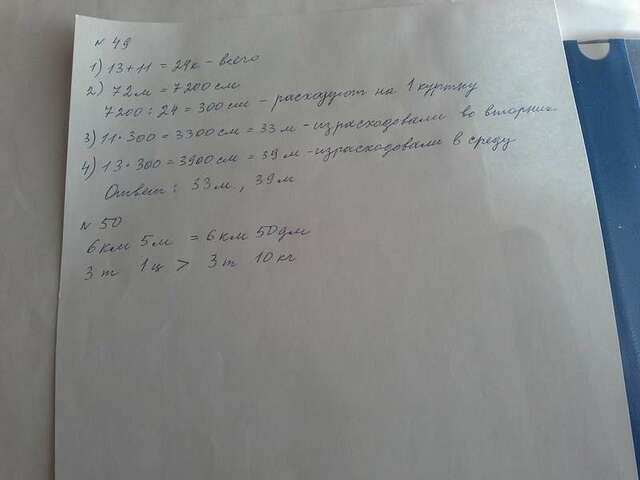 № 49
1) 13+11 = 24к - всего
2) 72м = 7200 см
7200 : 24 = 300 см - расходуют на 1 куртку
3) 11 • 300 = 3300 см = 33 м - израсходовали во вторник
4) 13 • 300 = 3900 см = 39 м - израсходовали в среду
Ответ : 33 м , 39 м
№ 50
6 км 5 м = 6 км 50 дм
3 т 1 ц > 3 т 10 кг